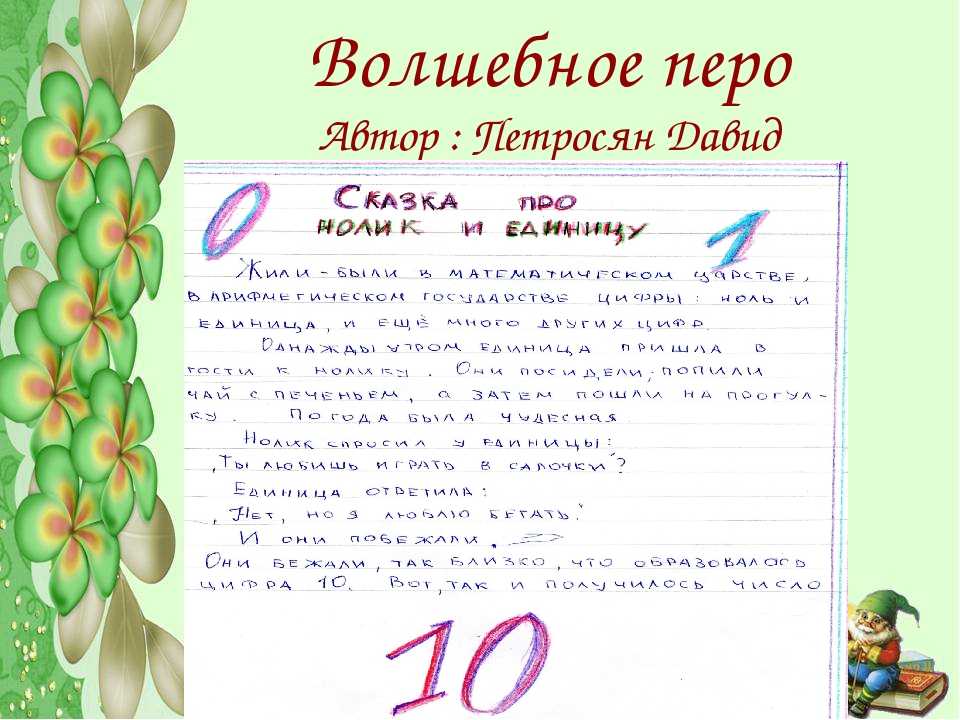 Волшебное перо
Автор : Петросян Давид
0 Сказка про 1
нолик и единицу
Жили-были в математическом царстве,
в арифметическом государстве цифры: ноль и
единица, и ещё много других цифр.
Однажды утром единица пришла в
гости к нолику. Они посидели, попили
чай с печеньем, а затем пошли на прогул-
ку. Погода была чудесная
Нолик спросил у единицы:
„Ты любишь играть в салочки"?
Единица ответила:
„Нет, но я люблю бегать."
И они побежали.
Они бежали, так близко, что образовалась
цифра 10. Вот, так и получилось число
10